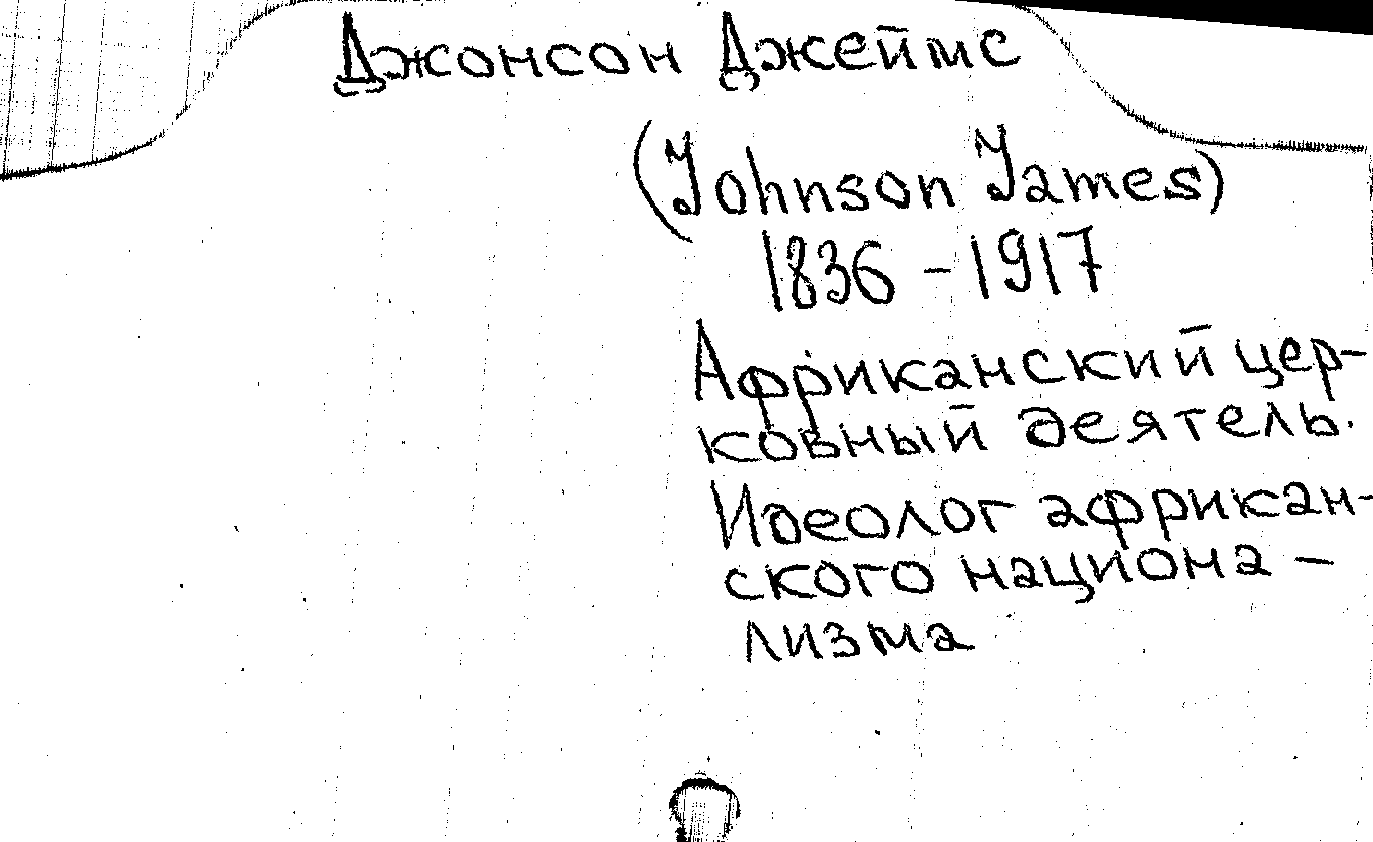 Джонсон Джеймс
(Johnson James)
1836 - 1917
Африканский цер-
ковный деятель.
Идеолог африкан-
ского национа -
лизма